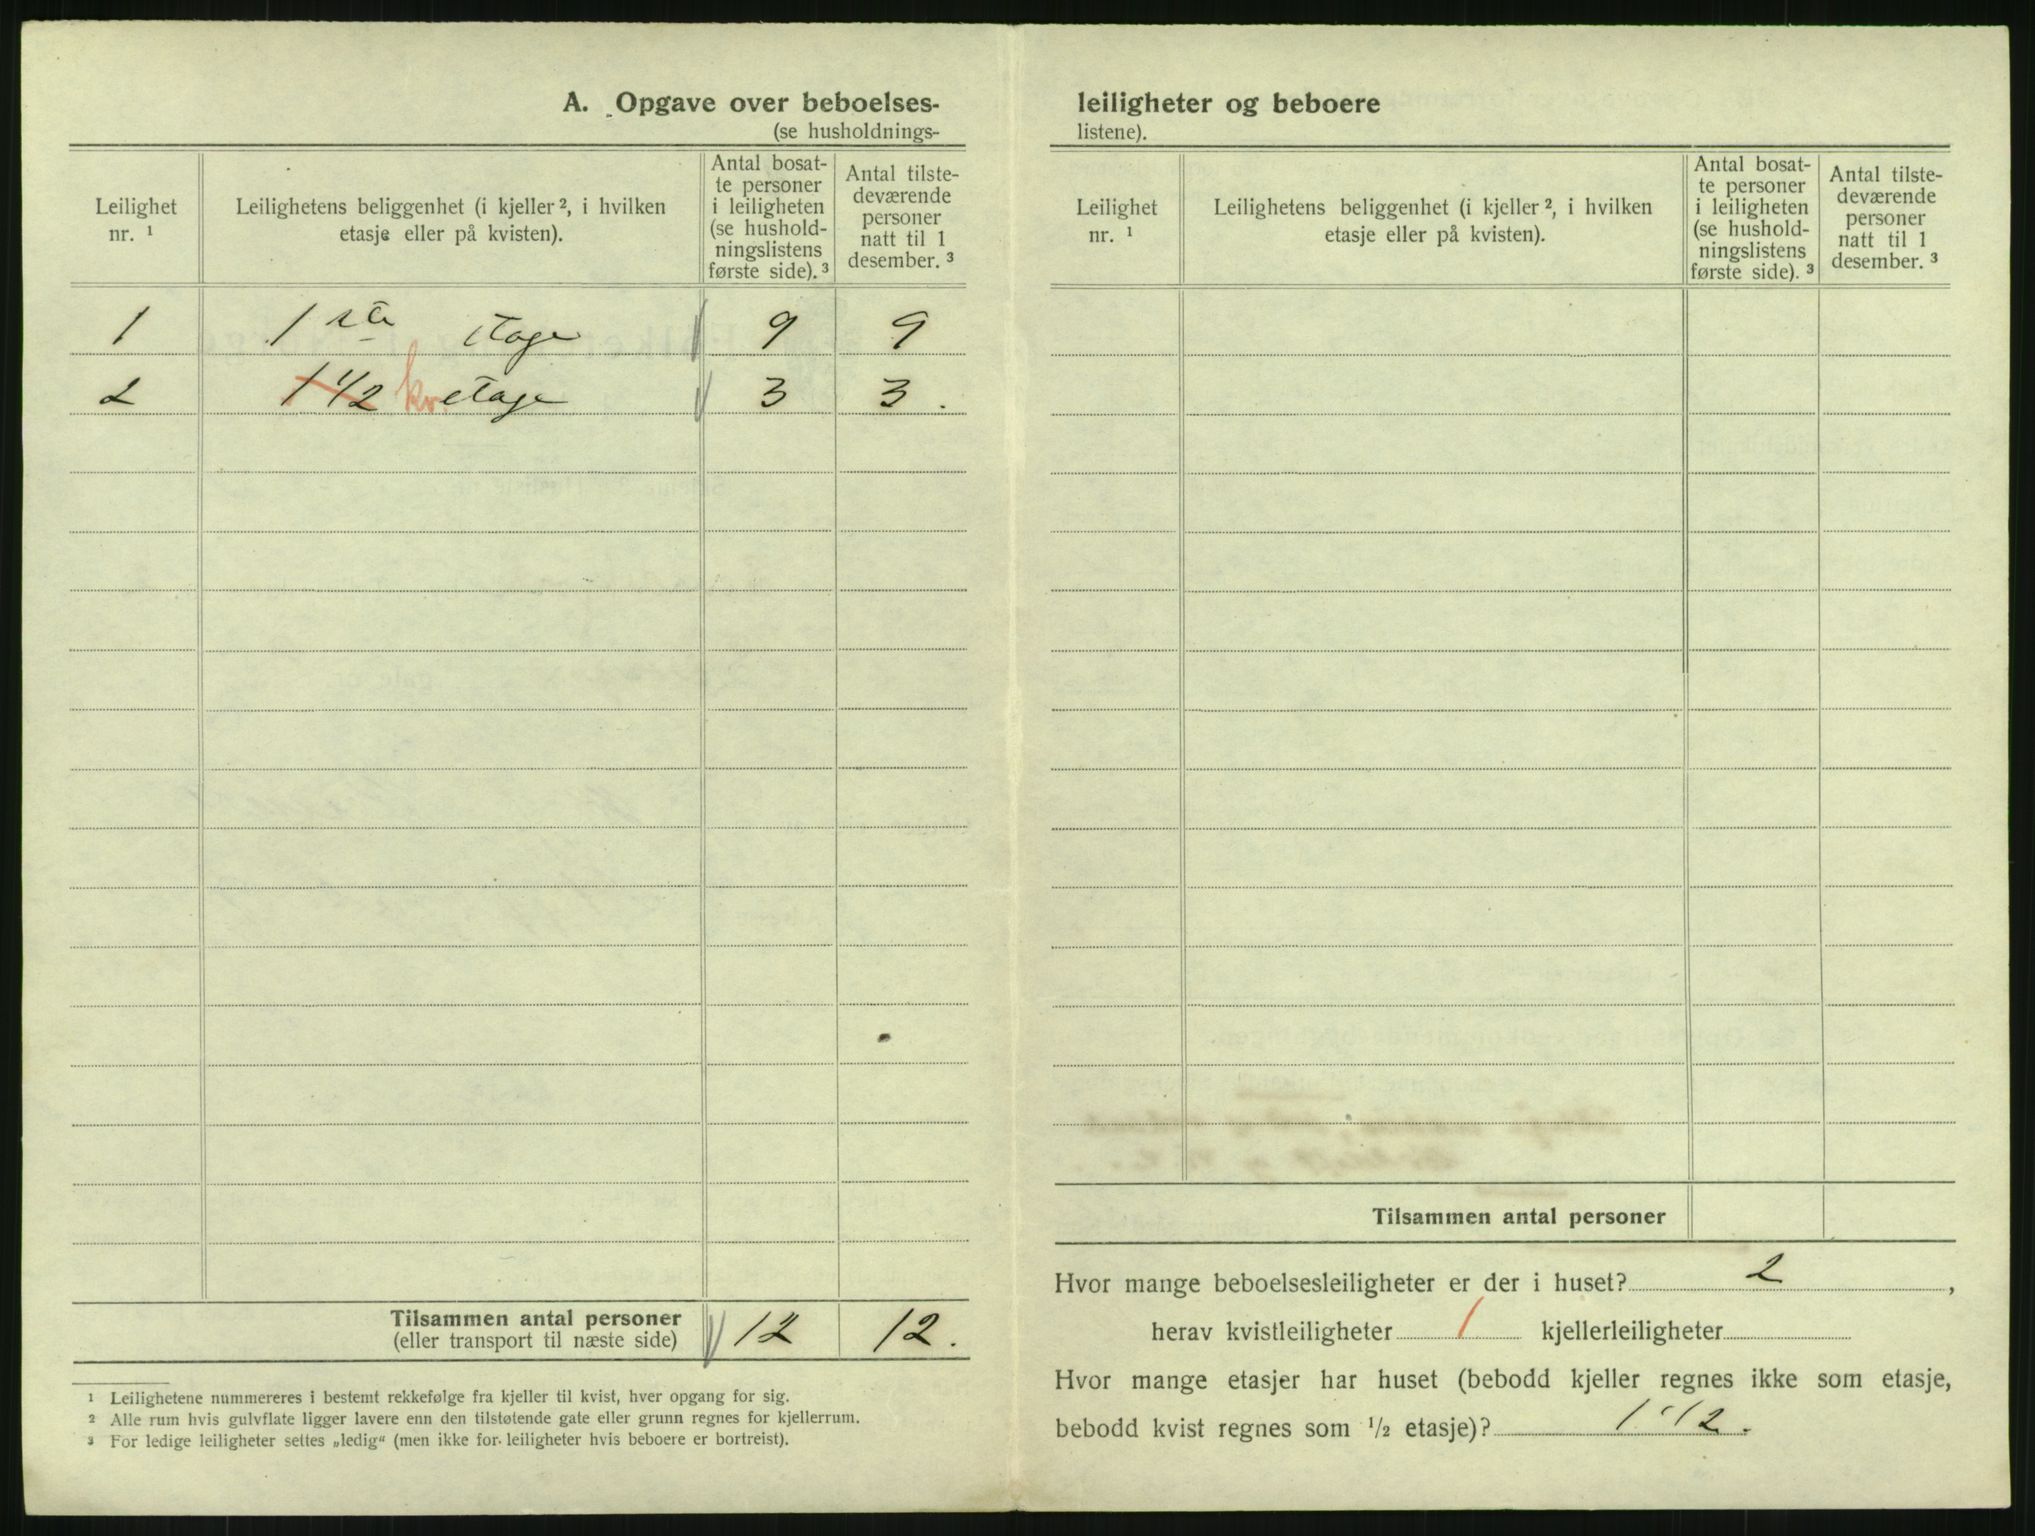 A. Opgave over beboelses-
(se husholdnings-
Leilighet
nr. 1
Leilighetens beliggenhet (i kjeller 2, i hvilken
etasje eller på kvisten).
Antal bosat-
te personer
i leiligheten
(se hushold-
ningslistens
første side). 3
Antal tilste-
deværende
personer
natt til 1
desember. 3
1 1 ste etage 9 9
2 1 1/2 kv. etage 3 3.
Tilsammen antal personer 12 12.
(eller transport til næste side)
1 Leilighetene nummereres i bestemt rekkefølge fra kjeller til kvist, hver opgang for sig.
2 Alle rum hvis gulvflate ligger lavere enn den tilstøtende gate eller grunn regnes for kjellerrum.
3 For ledige leiligheter settes „ledig“ (men ikke for leiligheter hvis beboere er bortreist).
leiligheter og beboere
listene).
Leilighet
nr. 1
Leilighetens beliggenhet (i kjeller 2, i hvilken
etasje eller på kvisten).
Antal bosat-
te personer
i leiligheten
(se hushold-
ningslistens
første side). 3
Antal tilste-
deværende
personer
natt til 1
desember. 3
Tilsammen antal personer
Hvor mange beboelsesleiligheter er der i huset? 2,
herav kvistleiligheter 1 kjellerleiligheter
Hvor mange etasjer har huset (bebodd kjeller regnes ikke som etasje,
bebodd kvist regnes som 1/2 etasje)? 1 1/2.